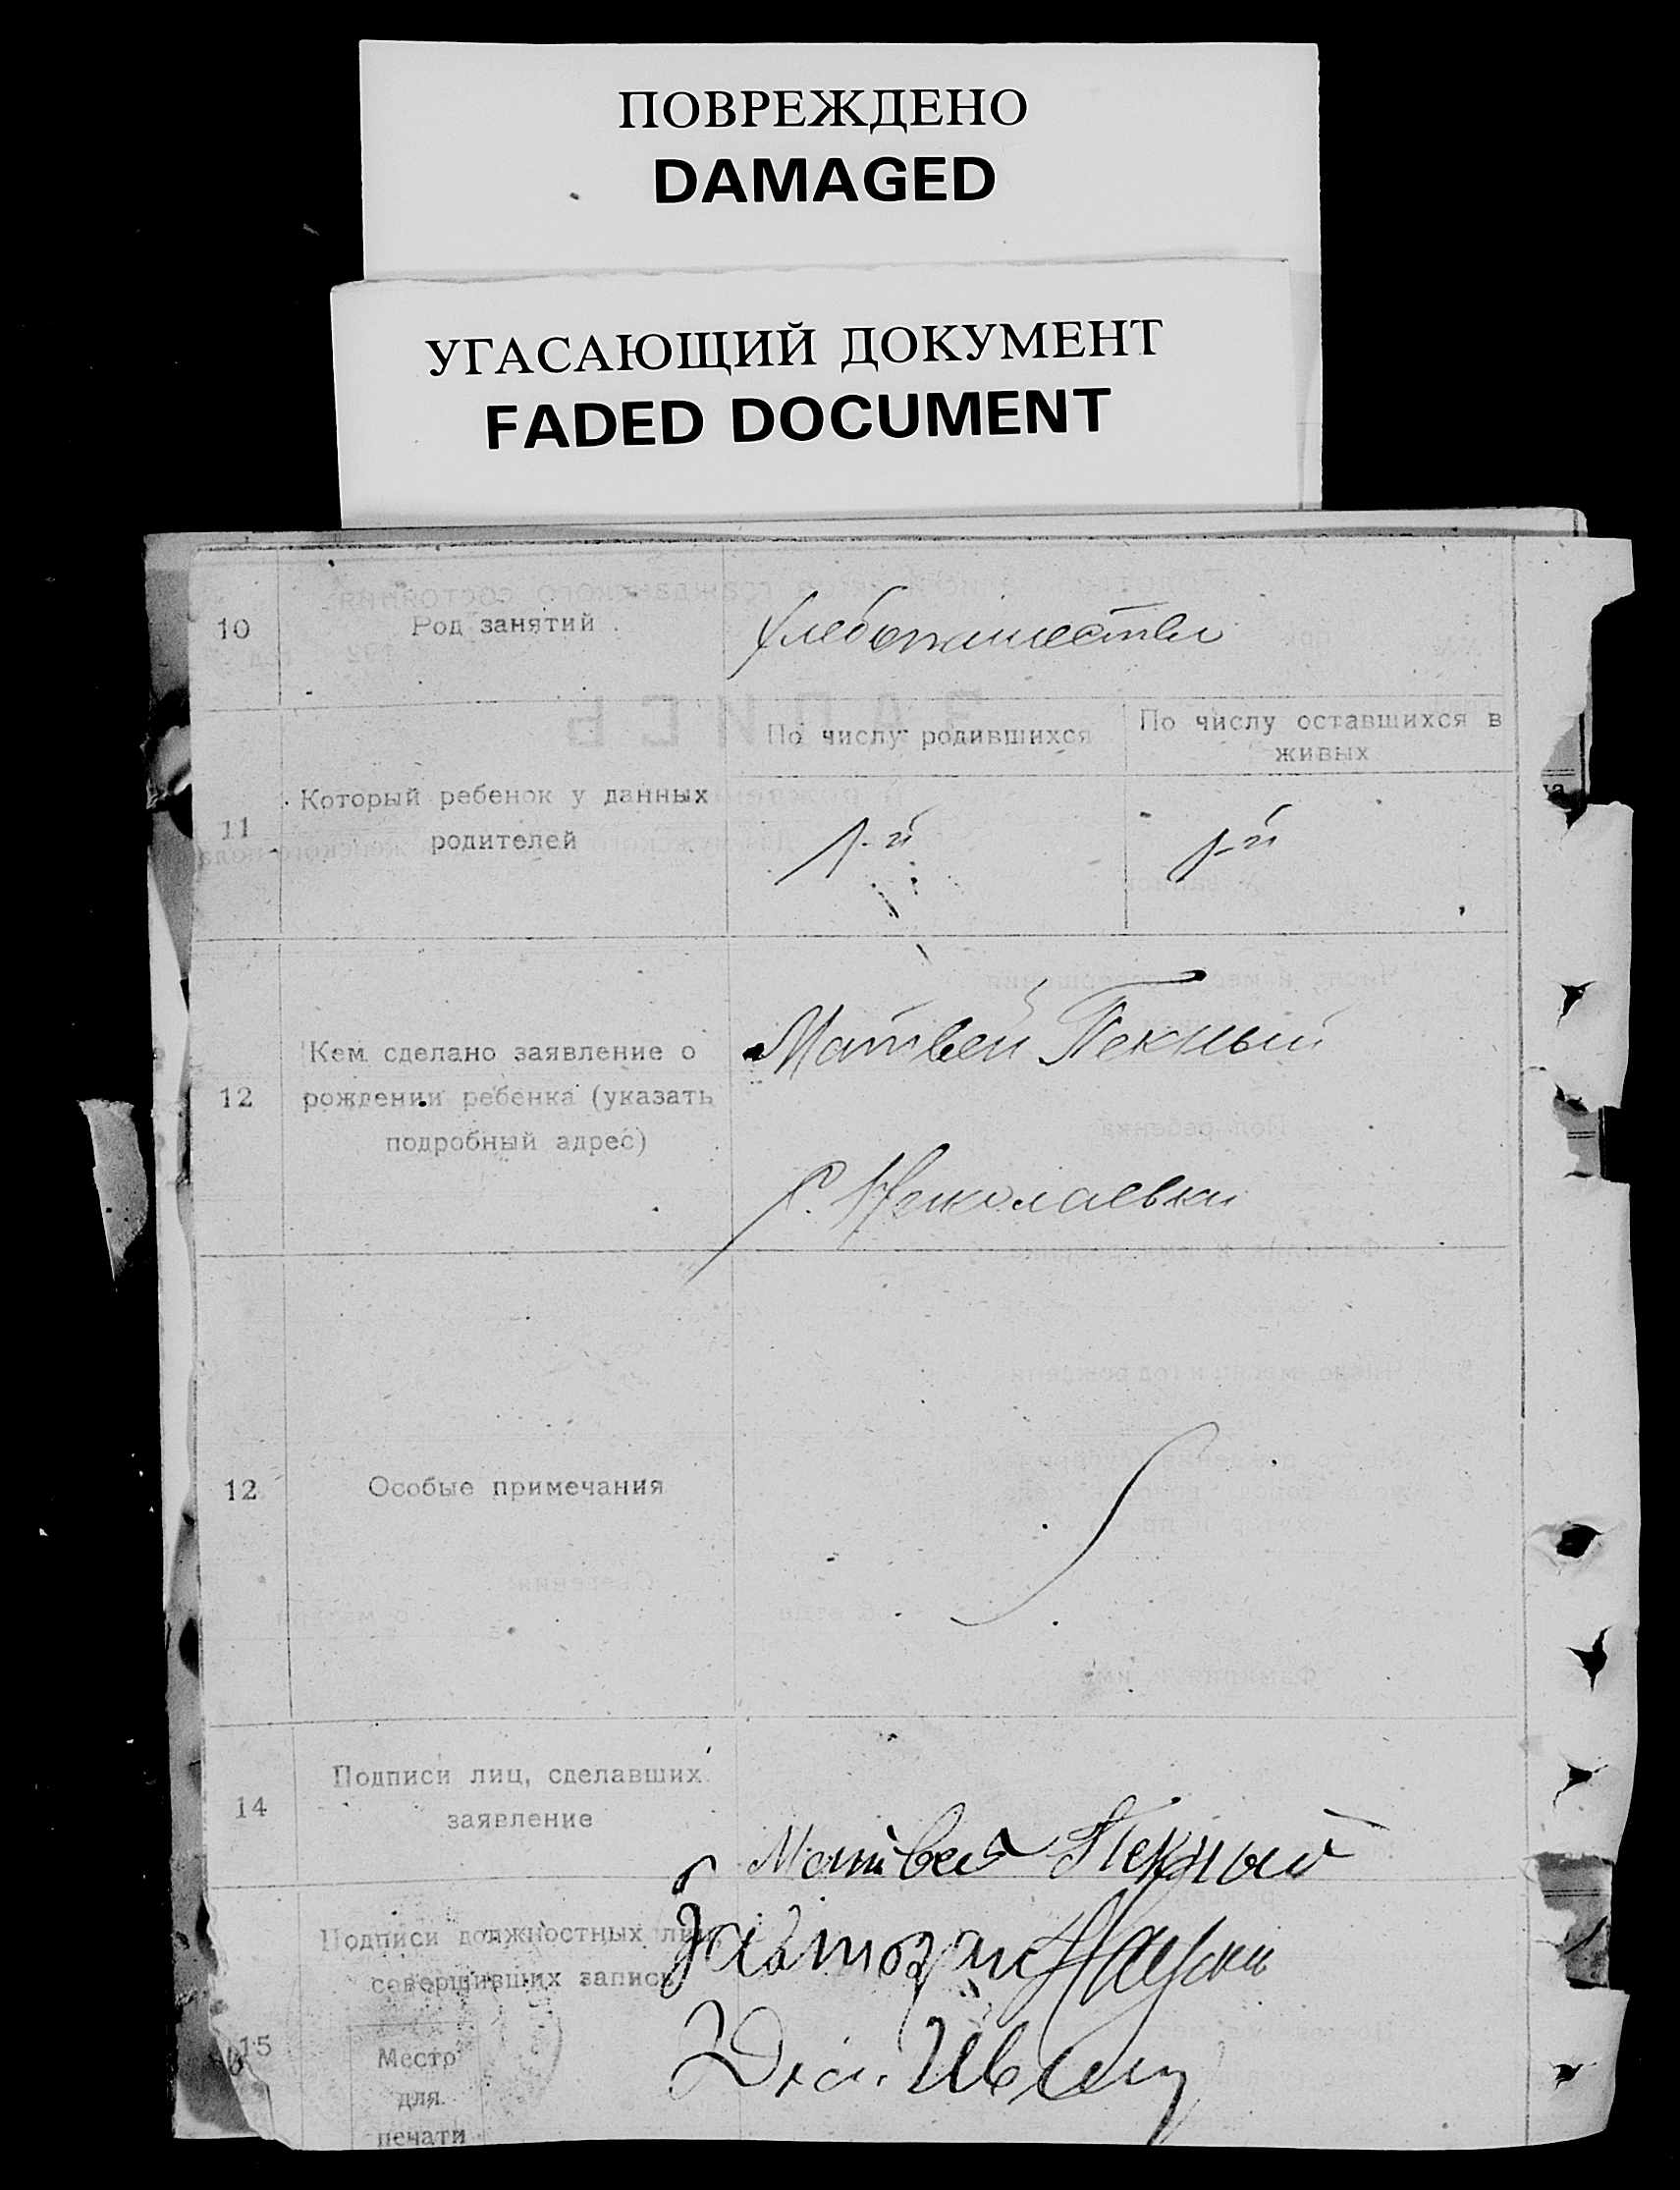 ПОВРЕЖДЕНО
DAMAGED
УГАСАЮЩИЙ ДОКУМЕНТ
FADED DOCUMENT
10
Род занятий
Хлебопашество
11
Который ребенок у данных
родителей
По числу родившихся
По числу оставшихся в
живых
1-й
1-й
12
Кем сделано заявление о
рождении ребенка (указать
подробный адрес)
Матвей Пекный
С. Николаевка
12
Особые примечания
14
Подписи лиц, сделавших
заявление
Матвей Пекный
15
Подписи должностных лиц,
совершивших запись
Место
для
печати